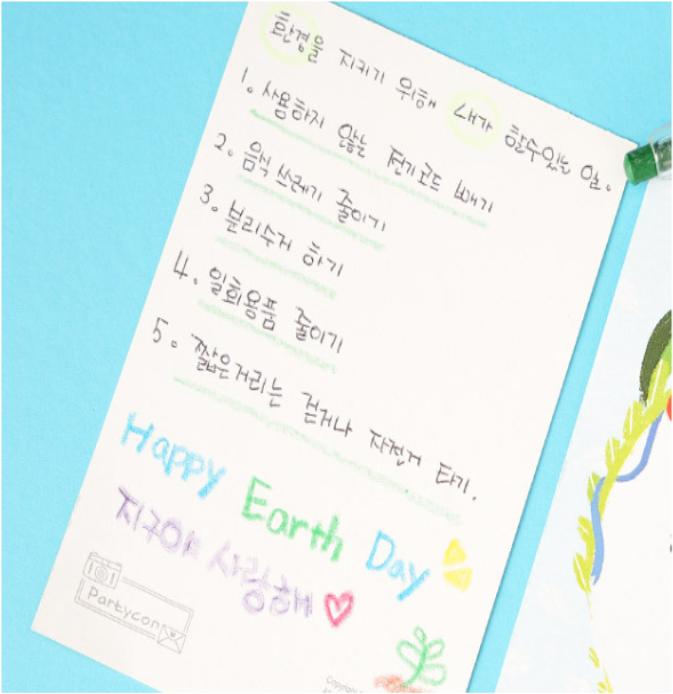 환경을 지키기 위해 내가 할수있는 일.
1. 사용하지 않는 전기코드 빼기
2. 음식 쓰레기 줄이기
3. 분리수거 하기
4. 일회용품 줄이기
5. 짧은거리는 걷거나 자전거 타기.
Happy Earth Day
지구야 사랑해
Partycon
Copyright